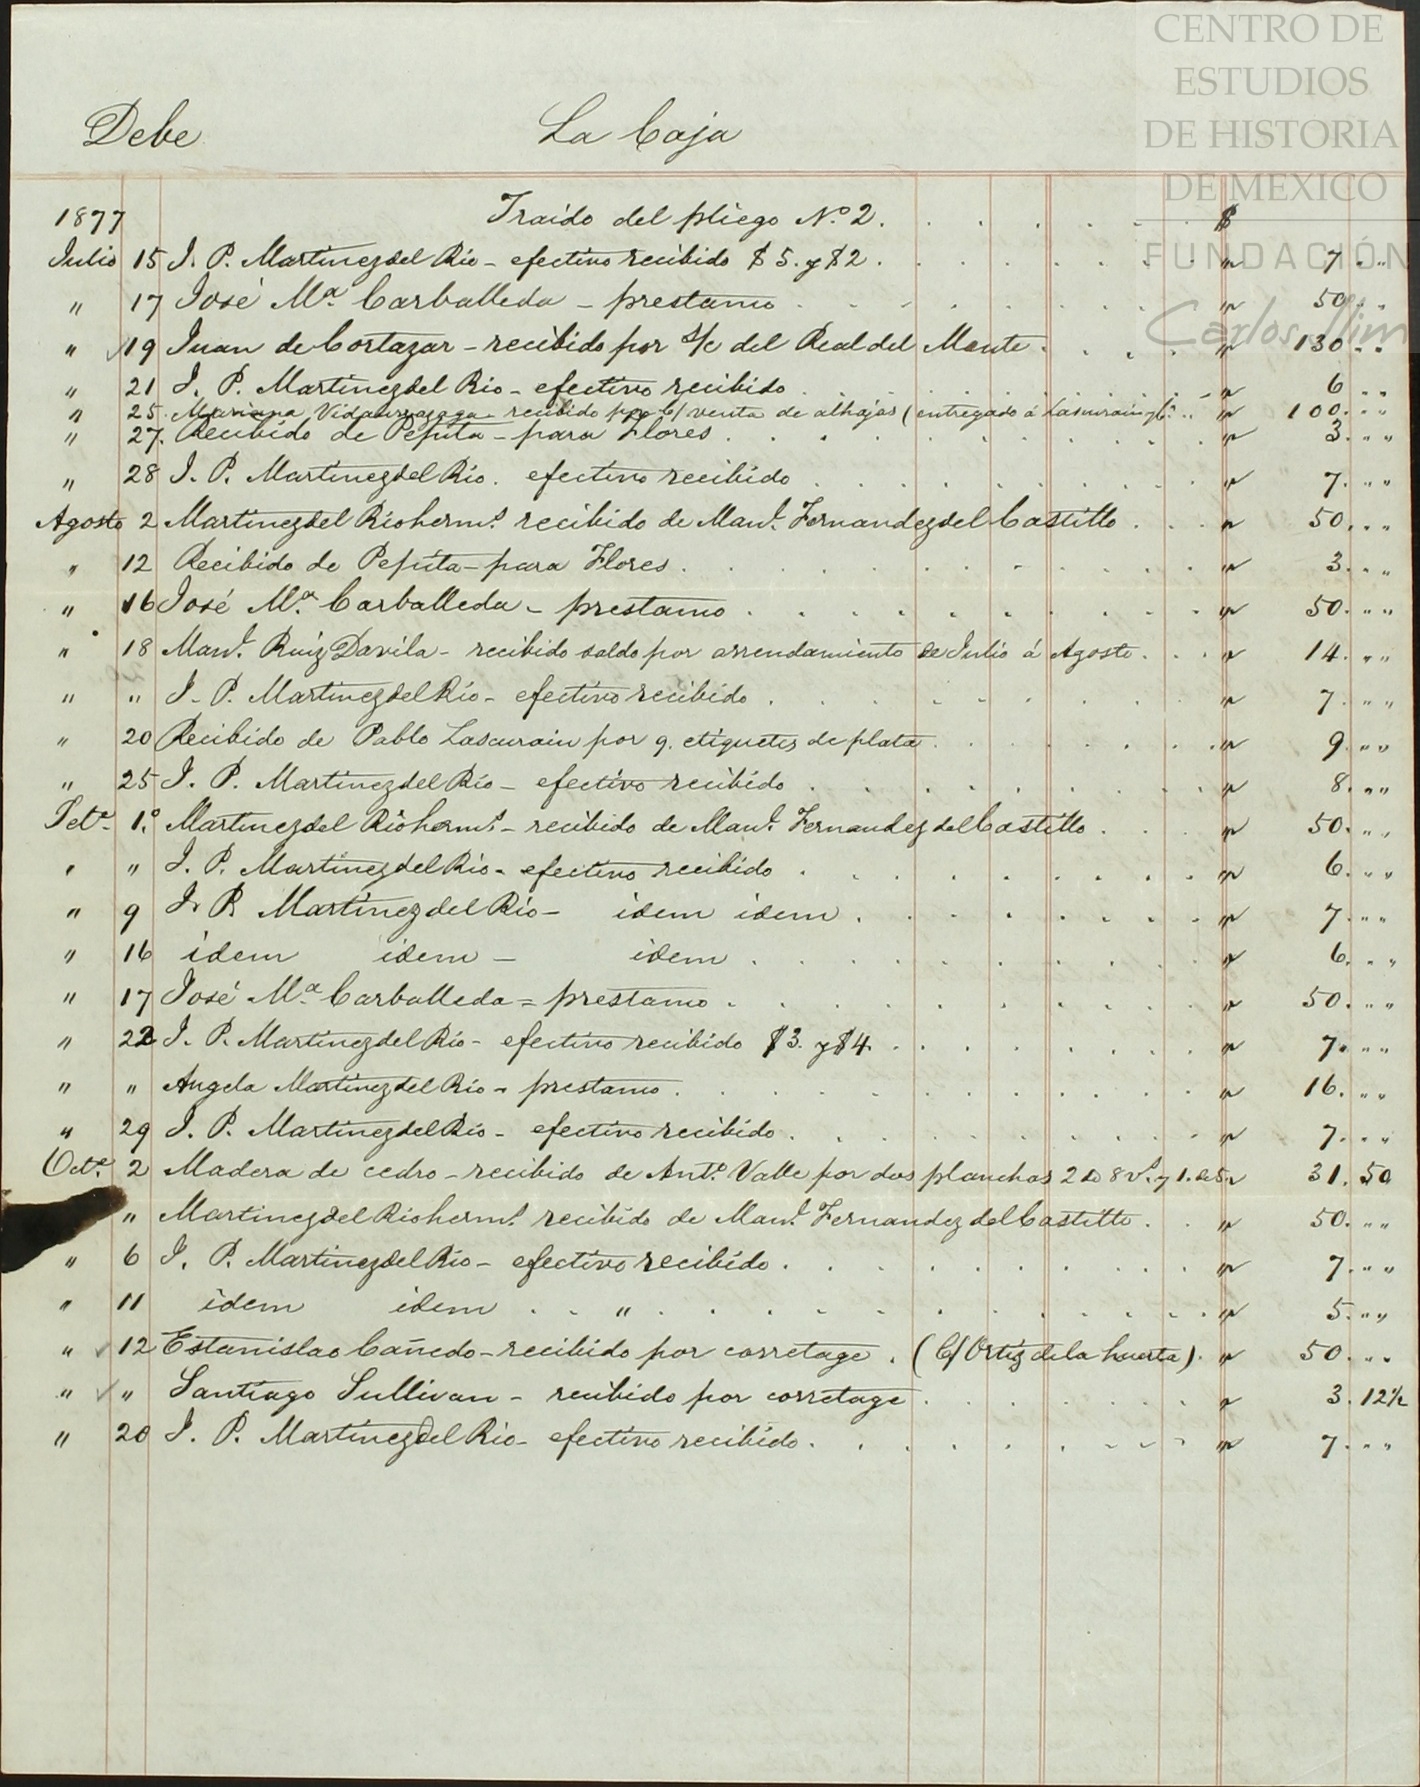 CENTRO DE
ESTUDIOS
DE HISTORIA
DE MEXICO
FUNDACIÓN
Carlos Slim
Debe La Caja
1877 Traido del pliego N.o 2. $
Julio 15 J. P. Martinez del Rio - efectivo recibido $5. y $2. " 7. " "
" 17 José M.a Carballeda - prestamo " 50. " "
" 19 Juan de Cortazar - recibido por s/c del Real del Monte. " 130. " "
" 21 J. P. Martinez del Rio - efectivo recibido " 6 " "
" 25. Mariana Vidaurrazaga recibido por c/ venta de alhajas (entregado á Lascurain y C.a " 100. " "
" 27. Recibido de Pepita - para Flores. " 3. " "
" 28 J. P. Martinez del Rio. efectivo recibido " 7. " "
Agosto 2 Martinez del Rio herm.s recibido de Man.l Fernandez del Castillo. " 50. " "
" 12 Recibido de Pepita - para Flores. " 3. " "
" 16 José M.a Carballeda - prestamo. " 50. " "
" 18 Man.l Ruiz Davila - recibido saldo por arrendamiento de Julio á Agosto. " 14. " "
" " J. P. Martinez del Rio - efectivo recibido. " 7. " "
" 20 Recibido de Pablo Lascurain por 9. etiquetes de plata. " 9. " "
" 25 J. P. Martinez del Rio - efectivo recibido. " 8. " "
Set.e 1.o Martinez del Rio herm.s - recibido de Man.l Fernandez del Castillo. " 50. " "
" " J. P. Martinez del Rio - efectivo recibido. " 6. " "
" 9 J. P. Martinez del Rio - idem idem. " 7. " "
" 16 idem idem - idem. " 6. " "
" 17 José M.a Carballeda = prestamo. " 50. " "
" 22 J. P. Martinez del Rio - efectivo recibido $3. y $4. " 7. " "
" " Angela Martinez del Rio - prestamo. " 16. " "
" 29 J. P. Martinez del Rio - efectivo recibido. " 7. " "
Oct.e 2 Madera de cedro - recibido de Ant.o Valle por dos planchas 2 de 8 v.s y 1. de 5 " 31. 50
" Martinez del Rio herm.s recibido de Man.l Fernandez del Castillo. " 50. " "
" 6 J. P. Martinez del Rio - efectivo recibido. " 7. " "
" 11 idem idem . . " . " 5. " "
" 12 Estanislao Cañedo - recibido por corretage. (C/ Ortiz de la huerta). " 50. " "
" " Santiago Sullivan - recibido por corretage. " 3. 12½
" 20 J. P. Martinez del Rio - efectivo recibido. " 7. " "